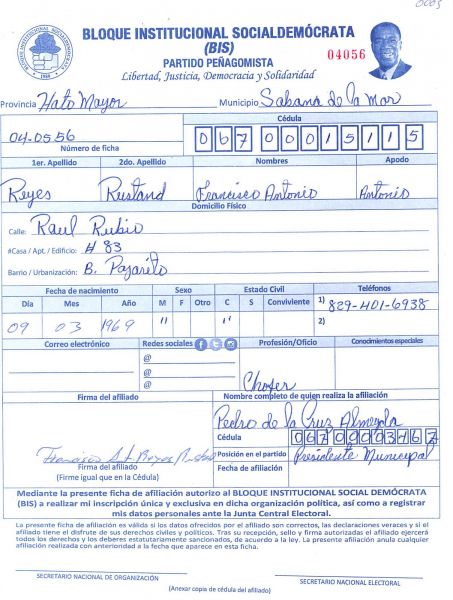 0003
BLOQUE INSTITUCIONAL SOCIALDEMÓCRATA
(BIS)
PARTIDO PEÑAGOMISTA
Libertad, Justicia, Democracia y Solidaridad
04056
BLOQUE INSTITUCIONAL SOCIALDEMOCRATA
Provincia Hato Mayor Municipio Sabana de la Mar
Cédula
04.0556 06700015115
Número de ficha
1er. Apellido 2do. Apellido Nombres Apodo
Reyes Rustand Francisco Antonio Antonio
Domicilio Físico
Calle: Raul Rubio
#Casa / Apt. / Edificio: # 83
Barrio / Urbanización: B. Pajarito
Fecha de nacimiento Sexo Estado Civil Teléfonos
Día Mes Año M F Otro C S Conviviente 1) 829-401-6938
09 03 1969 " " 2)
Correo electrónico Redes sociales Profesión/Oficio Conocimientos especiales
@
@
@ Chofer
Firma del afiliado Nombre completo de quien realiza la afiliación
Pedro de la Cruz
Cédula
Posición en el partido Presidente Municipal
Firma del afiliado Fecha de afiliación
(Firme igual que en la Cédula)
Mediante la presente ficha de afiliación autorizo al BLOQUE INSTITUCIONAL SOCIAL DEMÓCRATA
(BIS) a realizar mi inscripción única y exclusiva en dicha organización política, así como a registrar
mis datos personales ante la Junta Central Electoral.
La presente ficha de afiliación es válida si los datos ofrecidos por el afiliado son correctos, las declaraciones veraces y si el
afiliado tiene el disfrute de sus derechos civiles y políticos. Tras su recepción, sello y firma autorizadas el afiliado ejercerá
todos los derechos y los deberes estatutariamente sancionados, de acuerdo a la ley. La presente afiliación anula cualquier
afiliación realizada con anterioridad a la fecha que aparece en esta ficha.
SECRETARIO NACIONAL DE ORGANIZACIÓN SECRETARIO NACIONAL ELECTORAL
(Anexar copia de cédula del afiliado)